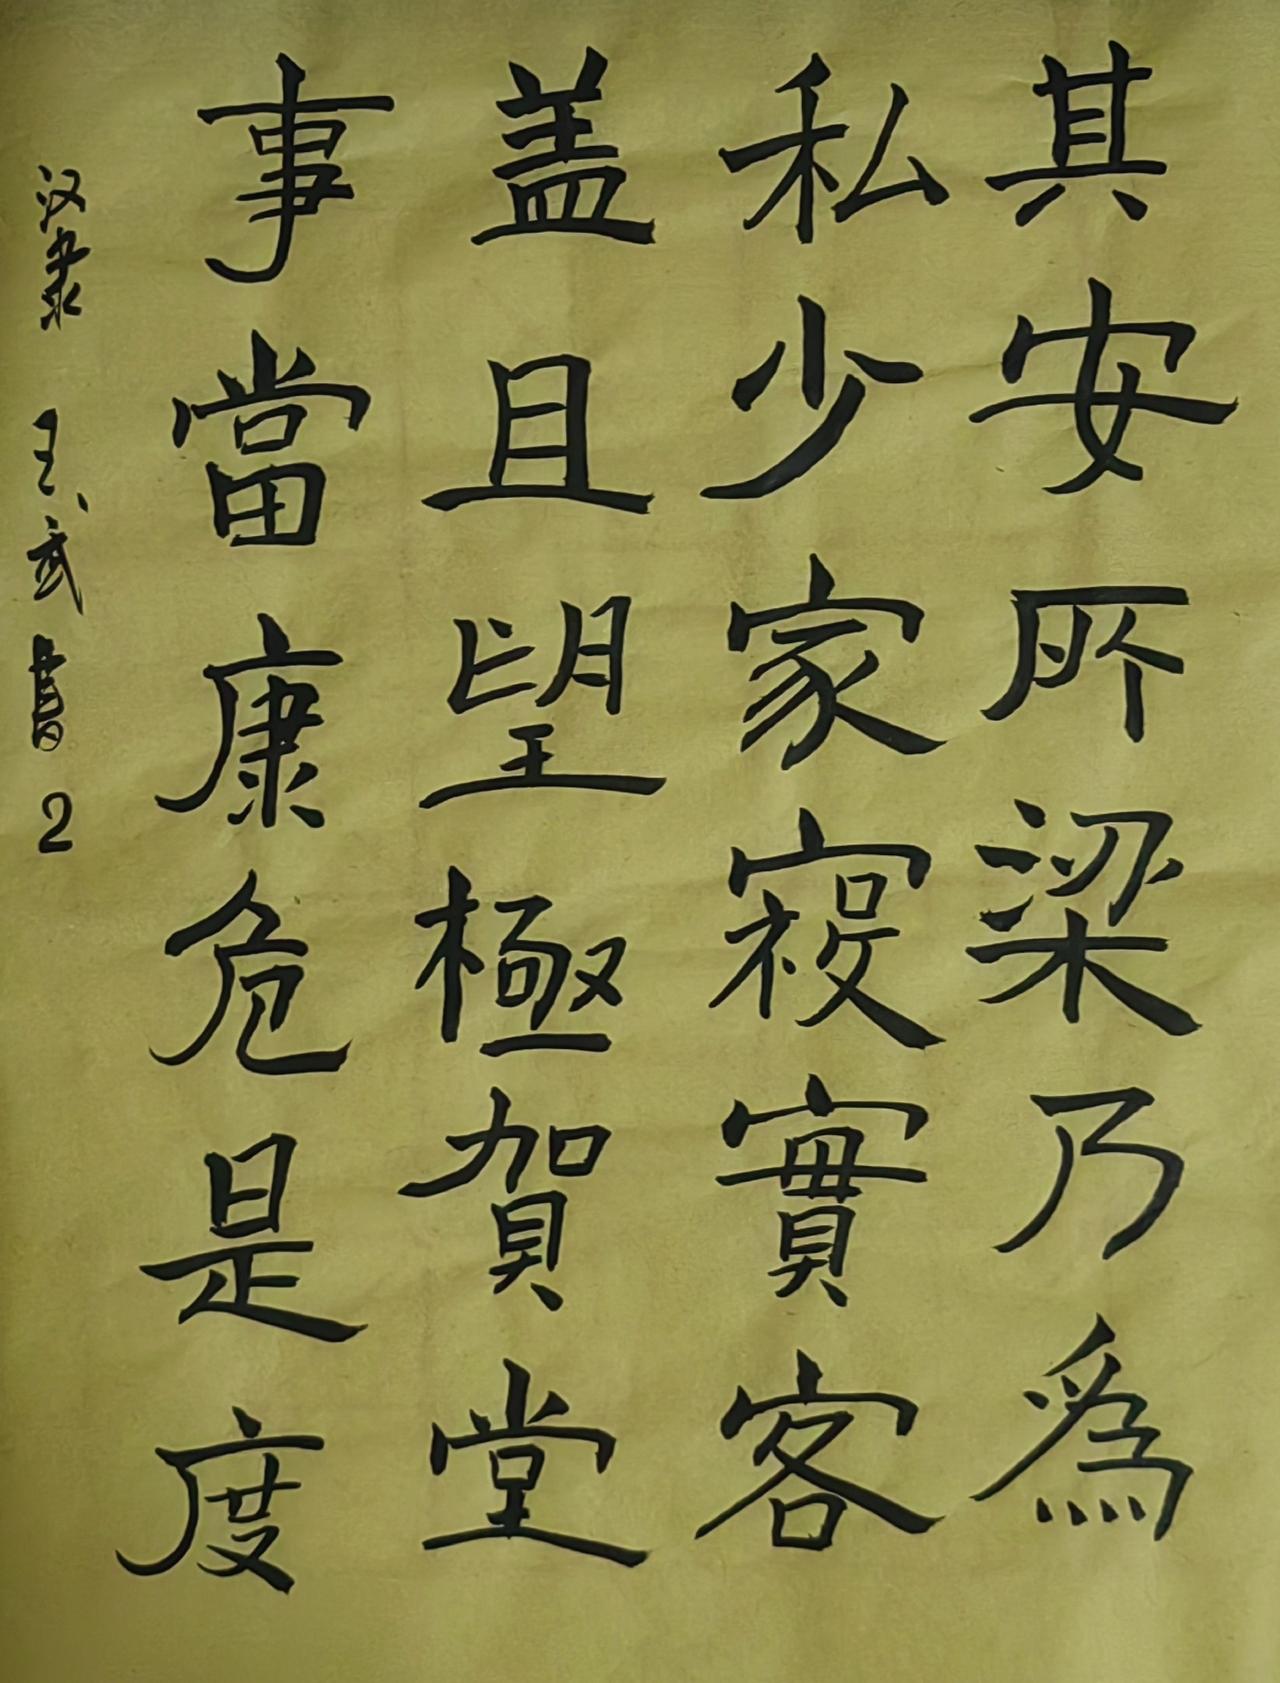 其安所梁乃為
私少家寑實客
盖且望極賀堂
事當康危是度
汉隶 王武書 2